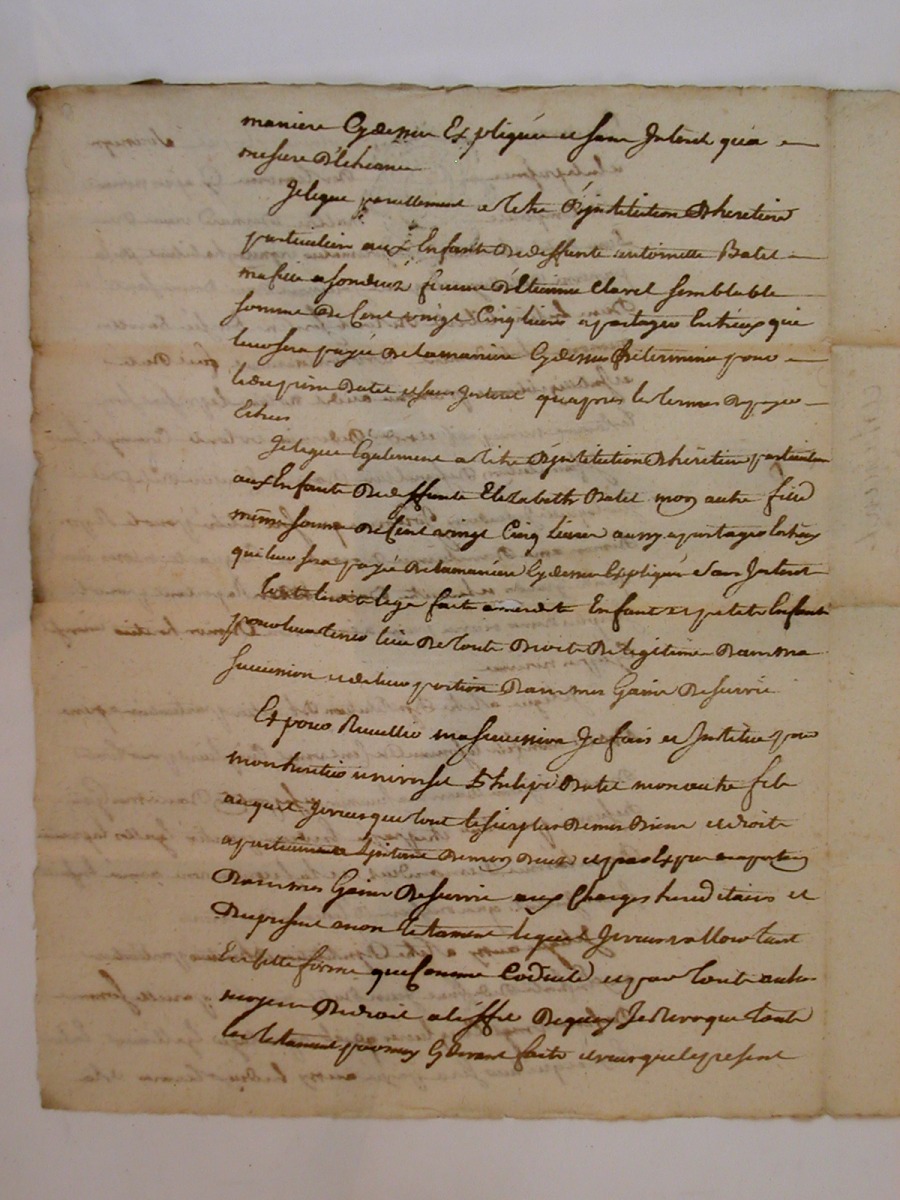 maniere Cydessus Expliquée et sans Interet qu'a
mesure D'Echeance
Je legue pareillement a titre D'institution D'heretiere
particuliere aux Enfants De deffunte antoinette Batet
ma fille a son deux femme D'Etienne Clavel semblable
somme De Cent vingt Cinq livres a partager Entreux qui
leur sera payée De la maniere Cydessus Determinée pour
Batet et sans Interet quapres les termes De payer
Echus
Je legue Egalement a titre D'institution D'heretier particulier
aux Enfants De deffunte Elizabeth Batet mon autre fille
même somme De Cent vingt Cinq livres aussy a partager Entreux
qui leur sera payée De la maniere Cydessus Expliquée et sans Interet
tout lesdits legs faits a mesdits Enfants et petits Enfants
pour leur tenir lieu De touts Droits De legitime Dans ma
succession et de leur portion Dans mes Gains De survie
Et pour Recueillir ma succession Je fais et Institue pour
mon heretier universel Philipe Batet mon autre fils
auquel Je veux que tout le surplus De mes Biens et droits
apartienne De mon Deces et par Exprès ma portion
Dans mes Gains De survie aux Charges hereditaires et
Du present mon testament lequel Je veux valloir tant
En cette forme que Comme Codicile et par toute autre
moyen De droit a l'effet De quoy Je Revoque touts
les testaments par moy Cy devant faits et veux que le present